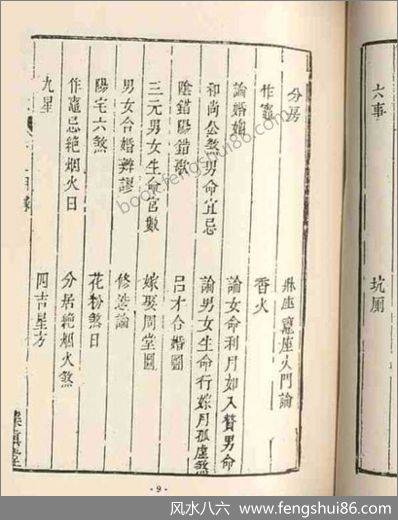 六事 坑厕
分房 鼎座竈座火門論
作竈 香火
論婚姻 論女命利月如入贅男命
和尚公煞男命宜忌 論男女生命行嫁月孤虛煞
陰錯陽錯 呂才合婚圖
三元男女生命宮數 嫁娶周堂圖
男女合婚辨謬 修造論
陽宅六煞 花粉煞日
作竈忌絕烟火日 分居絕烟火煞
九星 四吉星方
- 9 -
book.fengshui86.com
风水八六 - www.fengshui86.com